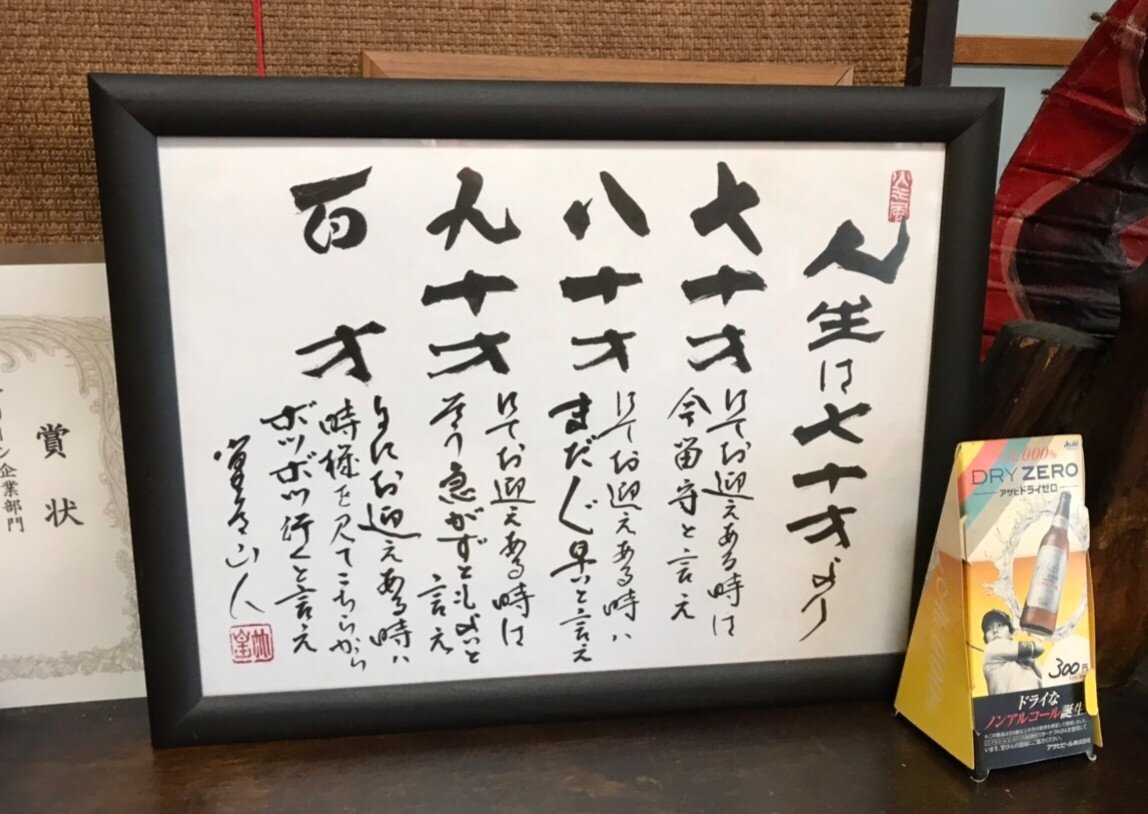 人生は七十才より
七十才
にてお迎えある時は
今留守と言え
八十才
にてお迎えある時ハ
まだまだ早いと言え
九十才
にてお迎えある時は
そう急がずともよいと
言え
百才
にてお迎えある時ハ
時機を見てこちらから
ボツボツ行くと言え
賞状
企業部門
Asahi
0.00%
DRY ZERO
アサヒドライゼロ
300円
ドライな
ノンアルコール誕生
アサヒビール株式会社